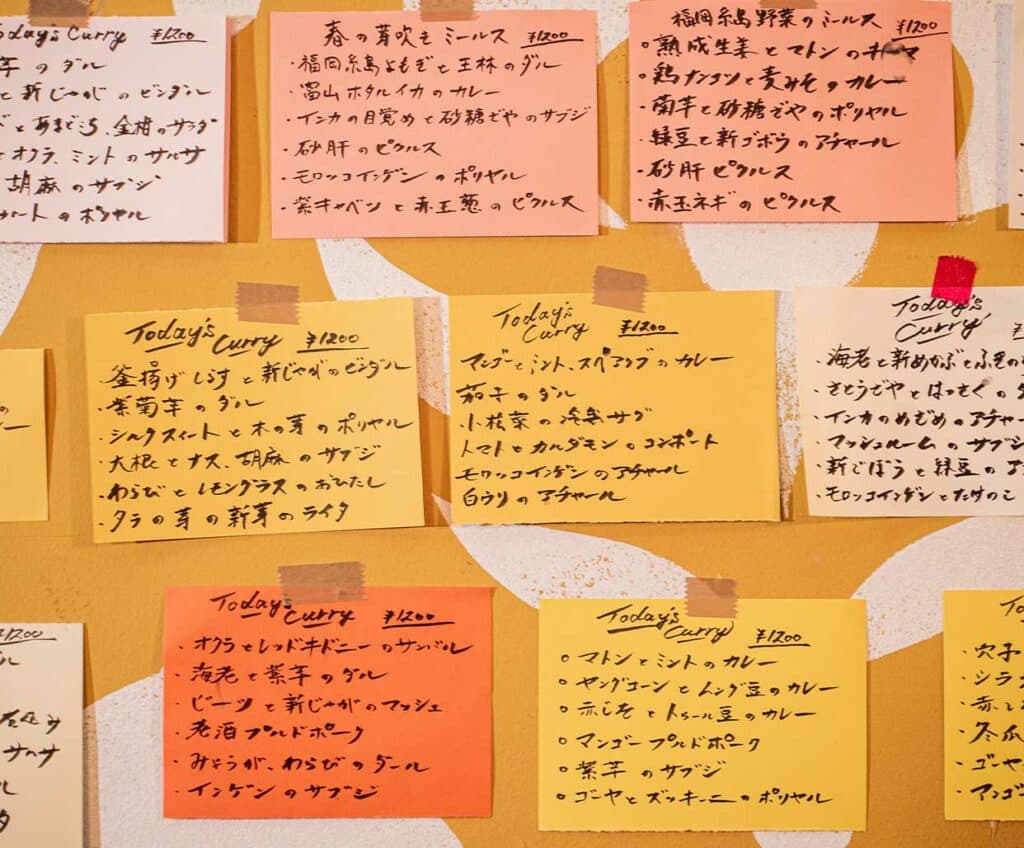 Today's Curry ¥1200
芋のダル
と新じゃがのビンダル
とあまどころ、金柑のサラダ
とオクラ、ミントのサルサ
胡麻のサブジ
のポリヤル
春の芽吹きミールス ¥1200
・福岡糸島よもぎと王林のダル
・富山ホタルイカのカレー
・インカの目覚めと砂糖ざやのサブジ
・砂肝のピクルス
・モロッコインゲンのポリヤル
・紫キャベツと赤玉葱のピクルス
福岡糸島野菜のミールス ¥1200
・熟成生姜とマトンの
・鶏ナンコツと麦みそのカレー
・菊芋と砂糖ざやのポリヤル
・緑豆と新ゴボウのアチャール
・砂肝ピクルス
・赤玉ネギのピクルス
Today's Curry ¥1200
・釜揚げしらすと新じゃがのビンダル
・紫菊芋のダル
・シルクスイートと木の芽のポリヤル
・大根とナス、胡麻のサブジ
・わらびとレモングラスのおひたし
・タラの芽の新芽のライタ
Today's Curry ¥1200
マンゴーとミント、スペアリブのカレー
茄子のダル
小松菜の サグ
トマトとカルダモンのコンポート
モロッコインゲンのアチャール
白ウリのアチャール
Today's Curry
・海老と新めかぶとふきの
・さとうざやとはっさくの
・インカのめざめのアチャー
・マッシュルームのサブジ
・新ごぼうと緑豆の
・モロッコインゲンとたけのこ
¥1200
Today's Curry ¥1200
・オクラとレッドキドニーのサンバル
・海老と紫芋のダル
・ビーツと新じゃがのマッシュ
・老酒プルドポーク
・みょうが、わらびのダール
・インゲンのサブジ
Today's Curry ¥1200
○マトンとミントのカレー
○ヤングコーンとムング豆のカレー
○赤じそとトゥール豆のカレー
○マンゴープルドポーク
○紫芋のサブジ
○ゴーヤとズッキーニのポリヤル
・穴子
・シラ
・赤と
・冬瓜
・ゴーヤ
・アンゴ